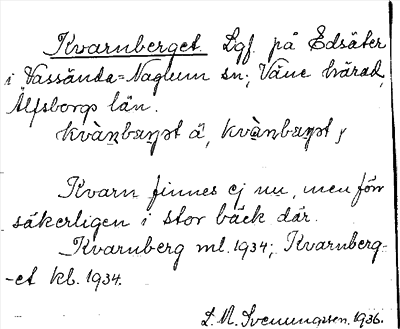 Kvarnberget. Lgf. på Edsäter
i Vassända-Naglum sn; Väne härad,
Älfsborgs län.
kvàṇbaṃ̣t å,
Kvarn finnes ej nu, men för
säkerligen i stor bäck där.
Kvarnberg ml. 1934; Kvarnberg-
-et kb. 1934.
L. M. Svenungsson, 1936.